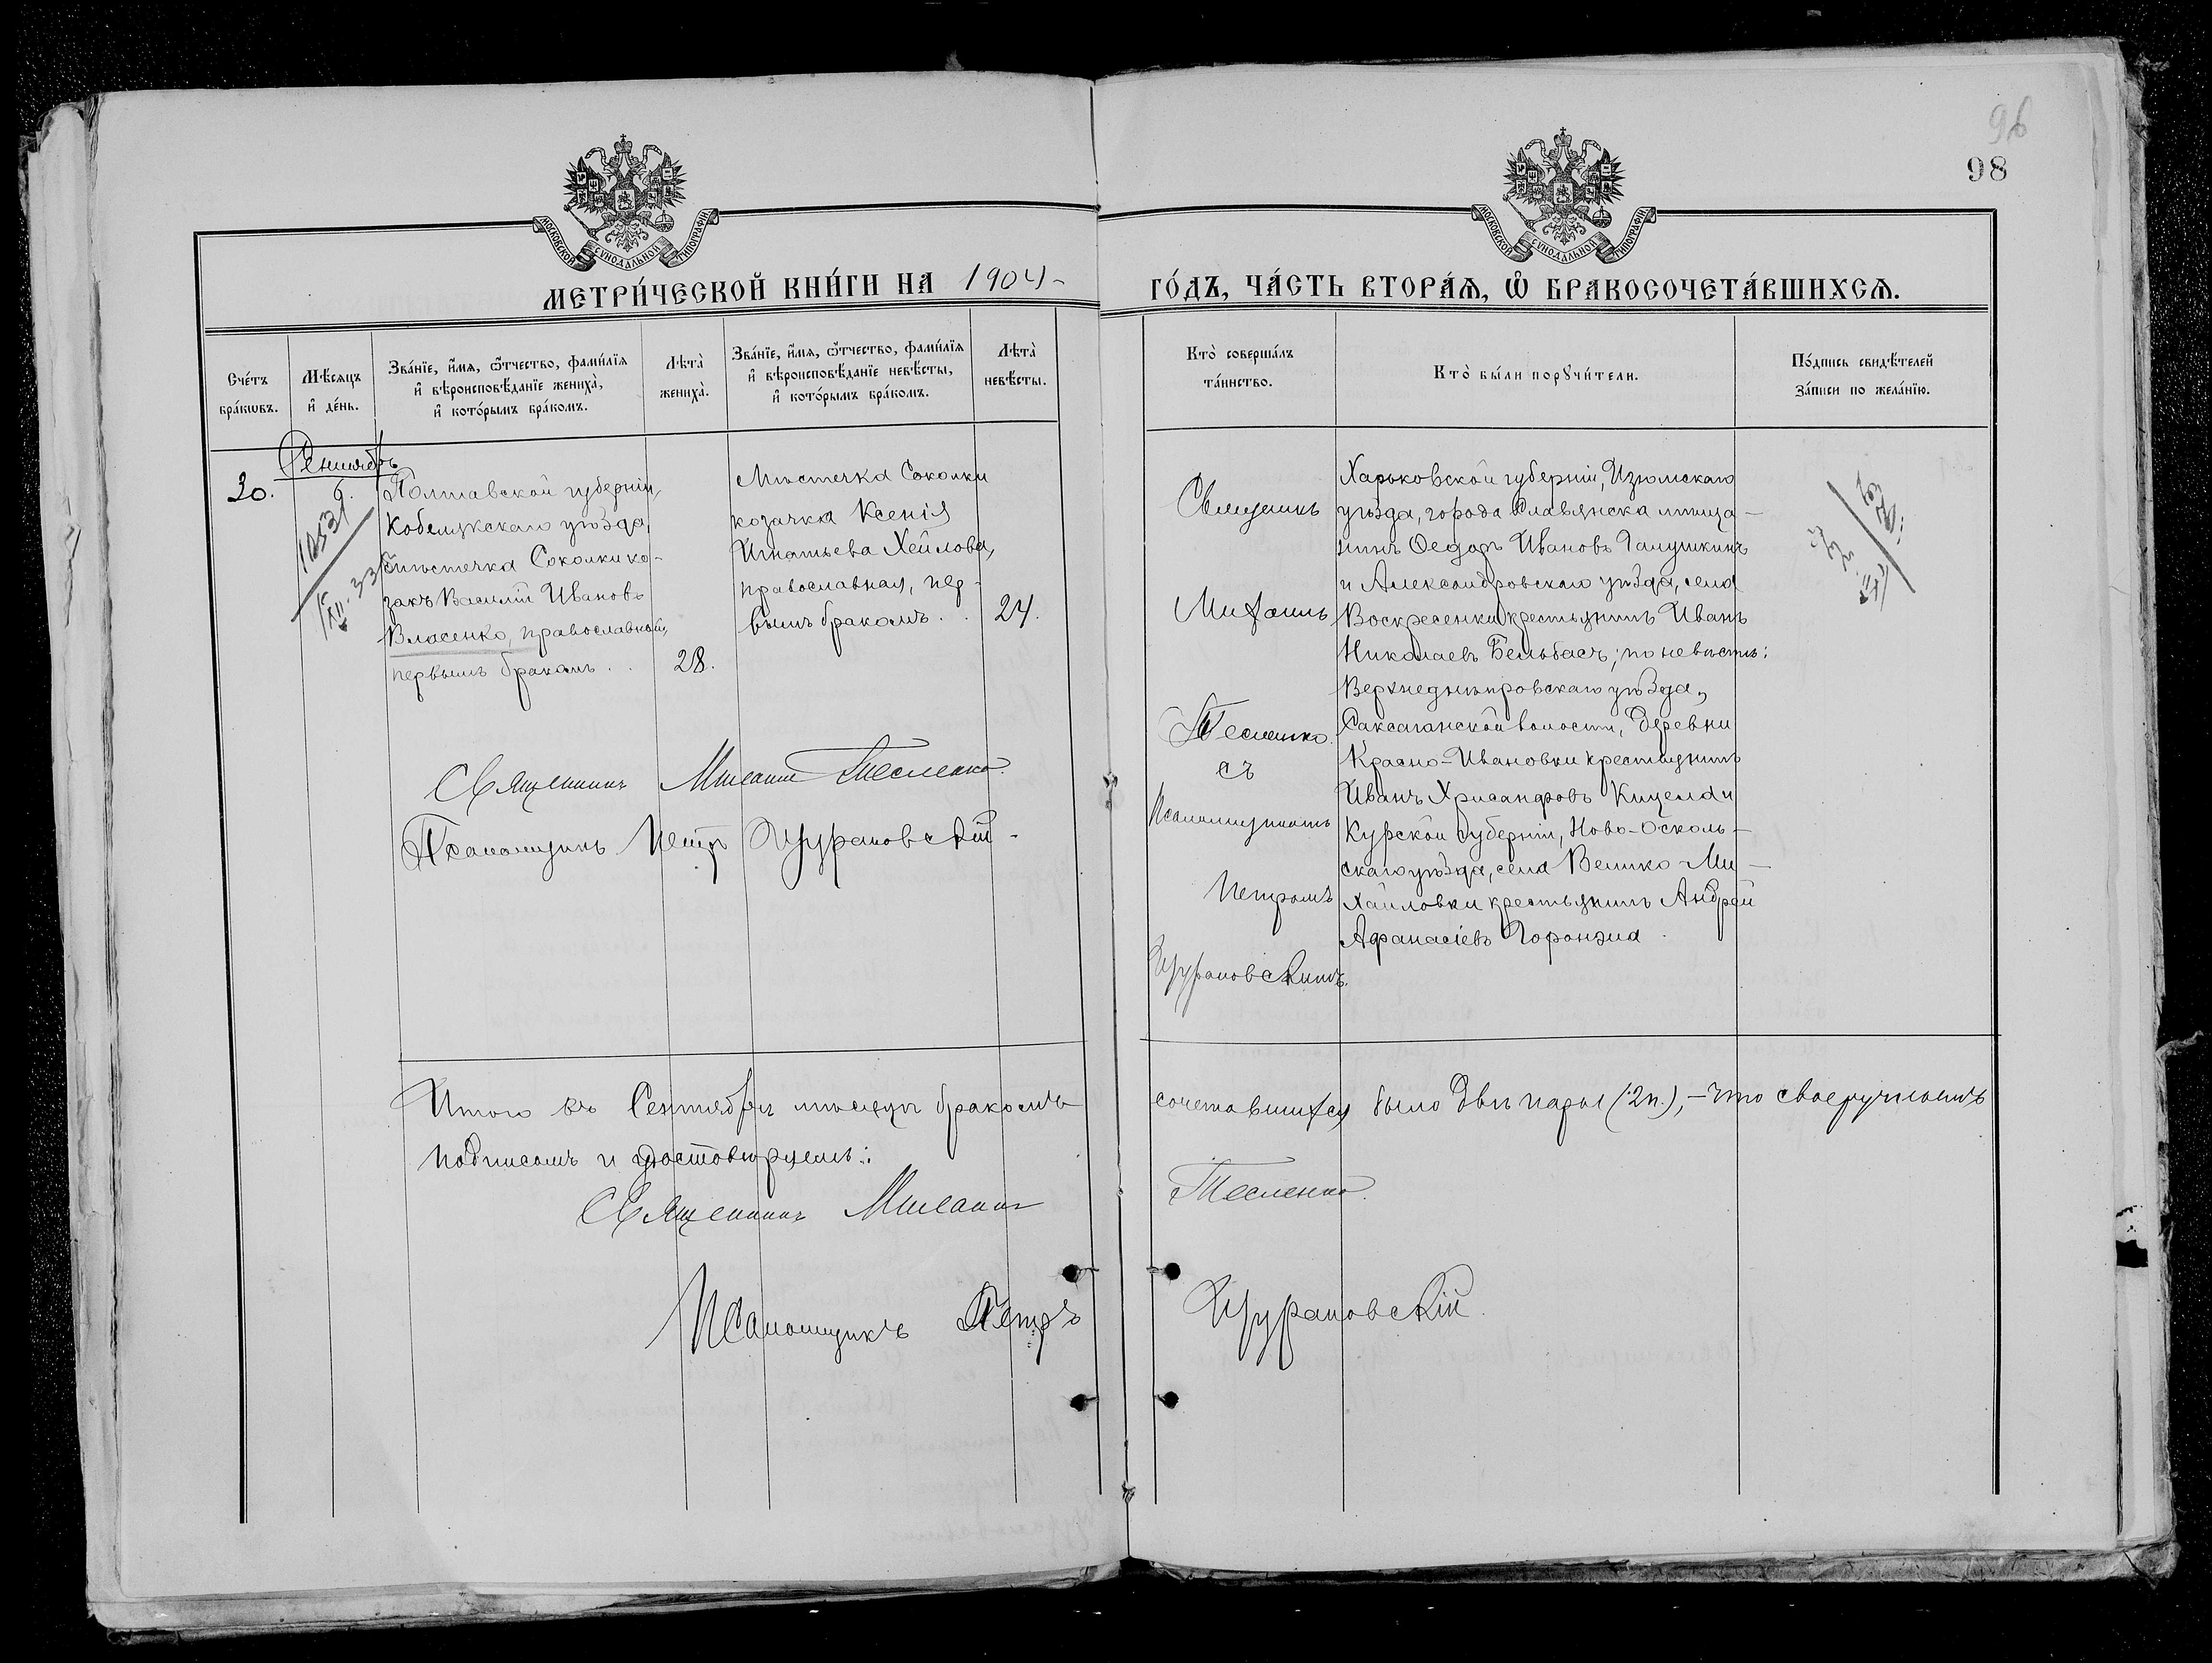 96
98
МОСКОВСКОЙ СѴНОДАЛЬНОЙ ТИПОГРАФІИ
МОСКОВСКОЙ СѴНОДАЛЬНОЙ ТИПОГРАФІИ
МЕТРИ́ЧЕСКОЙ КНИ́ГИ НА 1904 -
ГО́ДЪ, ЧА́СТЬ ВТОРА́Ѧ, Ѡ҆ БРАКОСОЧЕТА́ВШИХСѦ.
Сче́тъ бра́кѡвъ.
Мѣ́сѧцъ и҆ де́нь.
Зва́нїе, и҆́мѧ, ѻ҆́тчество, фами́лїѧ
и҆ вѣроисповѣ́данїе жениха̀,
и҆ кото́рымъ бра́комъ.
Лѣта̀ жениха̀.
Зва́нїе, и҆́мѧ, ѻ҆́тчество, фами́лїѧ
и҆ вѣроисповѣ́данїе невѣ́сты,
и҆ кото́рымъ бра́комъ.
Лѣта̀ невѣ́сты.
Кто̀ соверша́лъ та́инство.
Кто̀ бы́ли порꙋчи́тели.
По́дпись свидѣ́телей за́писи по жела́нїю.
Сентябрь
20.
9.
Полтавской губерніи,
Кобелякскаго уѣзда,
мѣстечка Соколки ко-
закъ Василій Ивановъ
Власенко, православный,
первымъ бракомъ . .
28.
Мѣстечка Соколки
козачка Ксенія
Игнатьева Хейлова,
православная, пер-
вымъ бракомъ . .
24.
Священникъ Михаилъ Тесленко.
Псаломщикъ Петръ Цурановскій -
Михаилъ
Тесленко
съ
Псаломщикомъ
Петромъ
Цурановскимъ.
Харьковской губерніи, Изюмскаго
уѣзда, города Славянска мѣща-
нинъ Ѳедоръ Ивановъ Галушкинъ
и Александровскаго уѣзда, села
Воскресенки крестьянинъ Иванъ
Николаевъ Бельбасъ; по невѣстѣ:
Верхнеднѣпровскаго уѣзда,
Саксаганской волости, деревни
Красно-Ивановки крестьянинъ
Иванъ Хрисанфовъ
Курской губерніи, Ново-Осколь-
скаго уѣзда, села Велико-Ми-
хайловки крестьянинъ Андрей
Афанасіевъ
Итого въ Сентябрѣ мѣсяцѣ бракомъ
сочетавшихся было двѣ пары (2п.), - что своеручнымъ
подписомъ и удостовѣряемъ:
Священникъ Михаилъ Тесленко.
Псаломщикъ Петръ Цурановскій